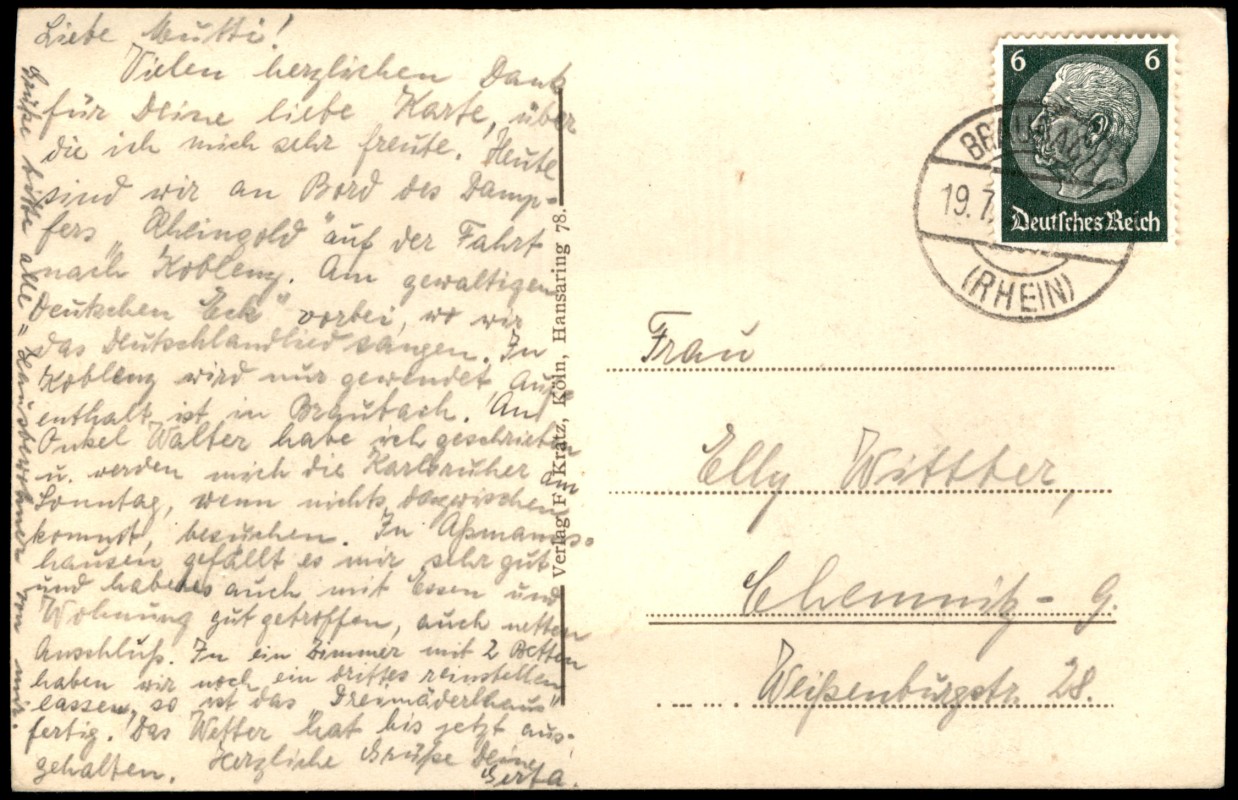 Liebe Mutti!
Vielen herzlichen Dank
für Deine liebe Karte, über
die ich mich sehr freute. Heute
sind wir an Bord des Damp-
fers „Rheingold" auf der Fahrt
nach Koblenz. Am gewaltigen
„Deutschen Eck" vorbei, wo wir
das Deutschlandlied sangen. In
Koblenz wird nur gewendet, Auf-
enthalt ist in Braubach. An
Onkel Walter habe ich geschrieben
u. werden mich die Karlsruher am
Sonntag, wenn nichts dazwischen
kommt, besuchen. In Aßmanns-
hausen gefällt es mir sehr gut
und haben es auch mit Essen und
Wohnung gut getroffen, auch netten
Anschluß. In ein Zimmer mit 2 Betten
haben wir noch ein drittes reinstellen
lassen, so ist das „Dreimäderlhaus"
fertig. Das Wetter hat bis jetzt aus-
gehalten. Herzliche Grüße Deine
Gerta.
Grüße bitte alle „Hausbewohner" von mir.
Verlag F. Kratz, Köln, Hansaring 78.
6 6
Deutsches Reich
BRAUBACH
19.7.
(RHEIN)
Frau
Elly Wittber,
Chemnitz-G.
Weißenburgstr. 28.